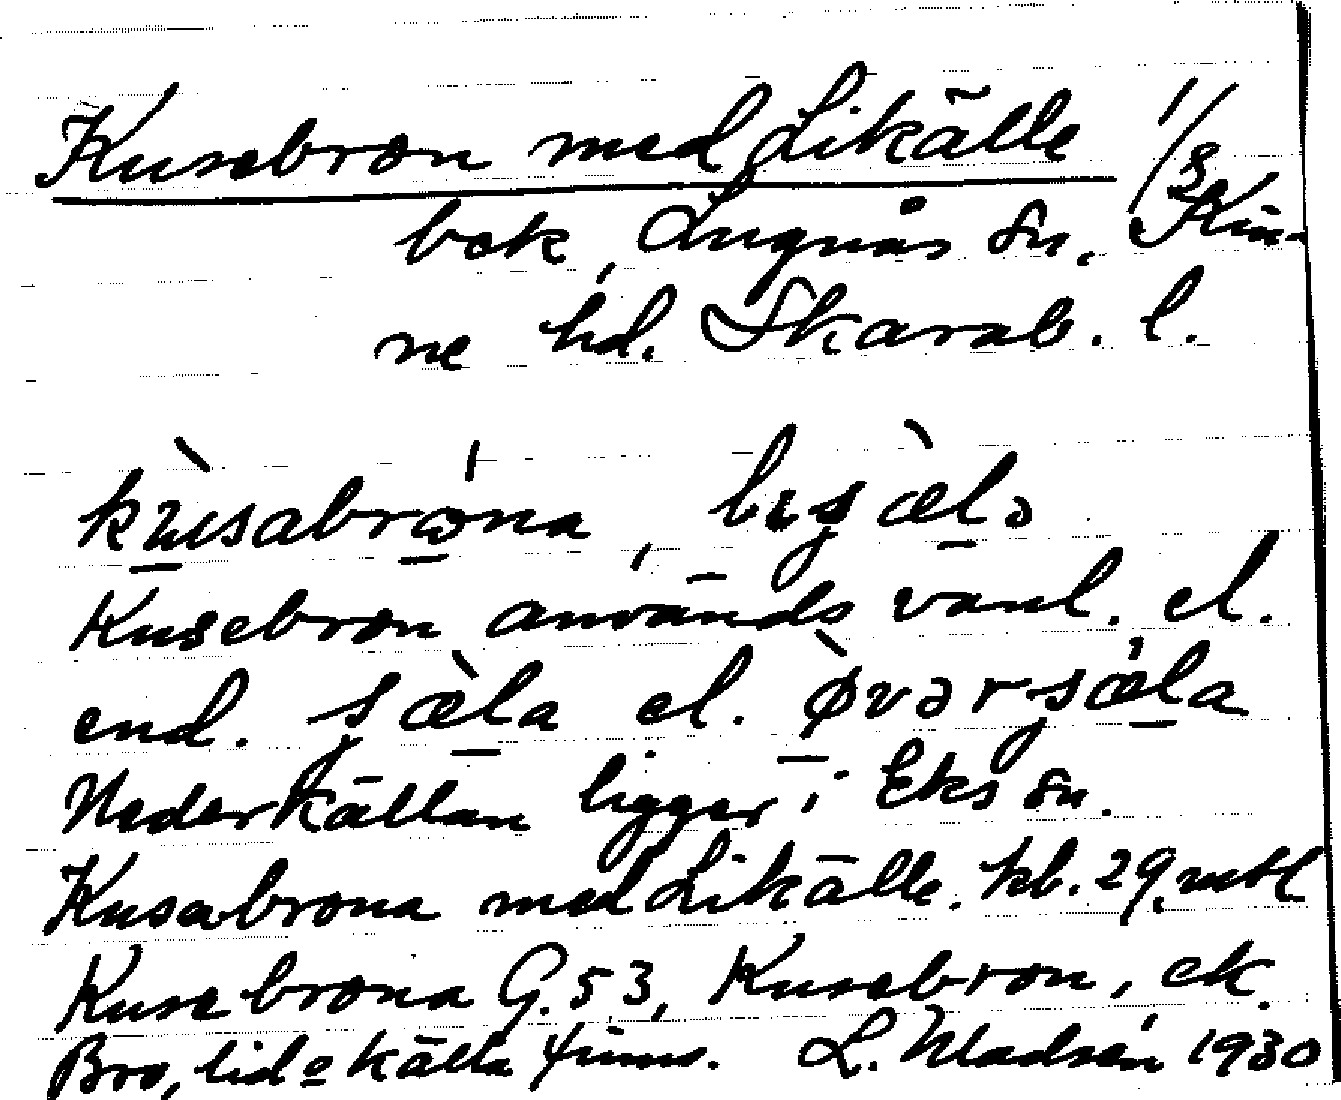 Kusebron med Likälle 1/8
bok, Lugnås sn. Kin-
ne hd. Skarab. l.
kusabrona, liʃælə
Kusebron används vanl. el.
end. ʃæla el. øvərʃæla
Nederkällan ligger i Eks sn.
Kusabrona med Likälle. kb. 29. mtl
Kusebrona G. 53, Kusebron, ek.
Bro, lid o källa finns. L. Madsén 1930